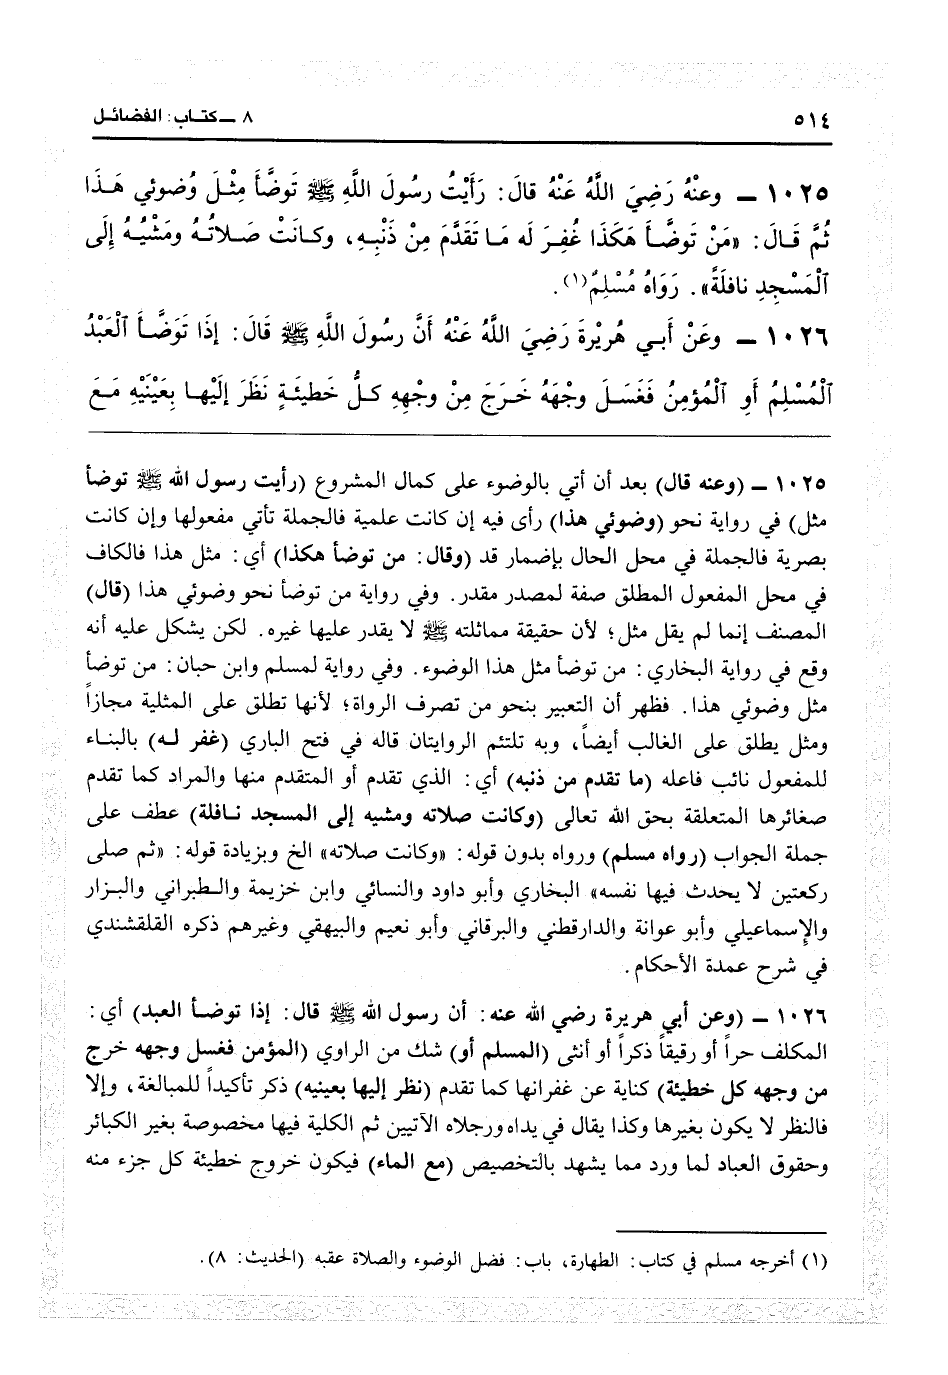 ٥١٤
٨ ــ كتـاب: الفضائـل
١٠٢٥ ــ وعنْهُ رَضِيَ اللَّهُ عَنْهُ قالَ: رَأَيْتُ رسُولَ اللَّهِ ﷺ تَوضَّأَ مِثْلَ وُضوئي هَـذَا
ثُمَّ قَـالَ: «مَنْ تَوضَّـأَ هَكَذَا غُفِـرَ لَه مَـا تَقَدَّمَ مِنْ ذَنْبِـهِ، وكـانَتْ صَـلاتُـهُ ومَشْيُـهُ إِلَى
ٱلْمَسْجِدِ نافلَةً». رَوَاهُ مُسْلِمٌ(١).
١٠٢٦ ــ وعَنْ أبـي هُرَيْرةَ رَضِيَ اللَّهُ عَنْهُ أَنَّ رسُولَ اللَّهِ ﷺ قَالَ: إِذَا تَوَضَّـأَ ٱلْعَبْدُ
ٱلْمُسْلِمُ أَوِ ٱلْمُؤمِنُ فَغَسَـلَ وجْهَهُ خَـرَجَ مِنْ وجْهِهِ كـلُّ خَطيئَـةٍ نَظَرَ إِلَيْهـا بِعَيْنَيْهِ مَـعَ
١٠٢٥ ــ (وعنه قال) بعد أن أتي بالوضوء على كمال المشروع (رأيت رسول الله ﷺ توضأ
مثل) في رواية نحو (وضوئي هذا) رأى فيه إن كانت علمية فالجملة تأتي مفعولها وإن كانت
بصرية فالجملة في محل الحال بإضمار قد (وقال: من توضأ هكذا) أي: مثل هذا فالكاف
في محل المفعول المطلق صفة لمصدر مقدر. وفي رواية من توضأ نحو وضوئي هذا (قال)
المصنف إنما لم يقل مثل؛ لأن حقيقة مماثلته ﷺ لا يقدر عليها غيره. لكن يشكل عليه أنه
وقع في رواية البخاري: من توضأ مثل هذا الوضوء. وفي رواية لمسلم وابن حبان: من توضأ
مثل وضوئي هذا. فظهر أن التعبير بنحو من تصرف الرواة؛ لأنها تطلق على المثلية مجازاً
ومثل يطلق على الغالب أيضاً، وبه تلتئم الروايتان قاله في فتح الباري (غفر لـه) بالبناء
للمفعول نائب فاعله (ما تقدم من ذنبه) أي: الذي تقدم أو المتقدم منها والمراد كما تقدم
صغائرها المتعلقة بحق الله تعالى (وكانت صلاته ومشيه إلى المسجد نـافلة) عطف على
جملة الجواب (رواه مسلم) ورواه بدون قوله: «وكانت صلاته» الخ وبزيادة قوله: «ثم صلى
ركعتين لا يحدث فيها نفسه» البخاري وأبو داود والنسائي وابن خزيمة والـطبراني والبـزار
والإِسماعيلي وأبو عوانة والدارقطني والبرقاني وأبو نعيم والبيهقي وغيرهم ذكره القلقشندي
في شرح عمدة الأحكام.
١٠٢٦ ــ (وعن أبي هريرة رضي الله عنه: أن رسول الله ﷺ قال: إذا توضـأ العبد) أي:
المكلف حراً أو رقيقاً ذكراً أو أنثى (المسلم أو) شك من الراوي (المؤمن فغسل وجهه خرج
من وجهه كل خطيئة) كناية عن غفرانها كما تقدم (نظر إليها بعينيه) ذكر تأكيداً للمبالغة، وإلا
فالنظر لا يكون بغيرها وكذا يقال في يداه ورجلاه الآتيين ثم الكلية فيها مخصوصة بغير الكبائر
وحقوق العباد لما ورد مما يشهد بالتخصيص (مع الماء) فيكون خروج خطيئة كل جزء منه
(١) أخرجه مسلم في كتاب: الطهارة، باب: فضل الوضوء والصلاة عقبه (الحديث: ٨).